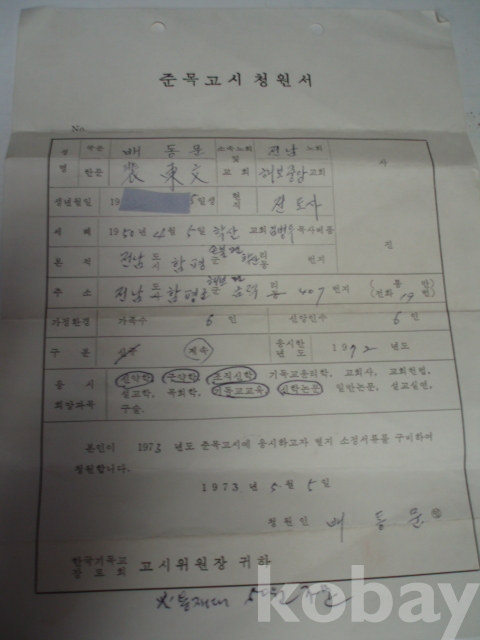 준목고시청원서
No.
성명 국문 배동문 소속노회 및 교회 전남 노회 사
한문 裵東文 교회
생년월일 19 5일생 현직 전도사
세례 1950년 4월 5일 학산 교회 목사비품
본적 전남 도 함평 군 번지 진
주소 전남 도 함평 407 번지 (전화 19번)
가정환경 가족수 6인 신앙인수 6인
구분 신규 계속 응시한 년도 1972 년도
응시 희망과목 신약학, 구약학, 조직신학, 기독교윤리학, 교회사, 교회헌법,
설교학, 목회학, 기독교교육, 신학논문, 일반논문, 설교실연,
구술.
본인이 1973 년도 준목고시에 응시하고자 별지 소정서류를 구비하여
청원합니다.
1973. 년 5. 월 5 일
청원인 배동문 ㊞
한국기독교 장로회 고시위원장 귀하
kobay